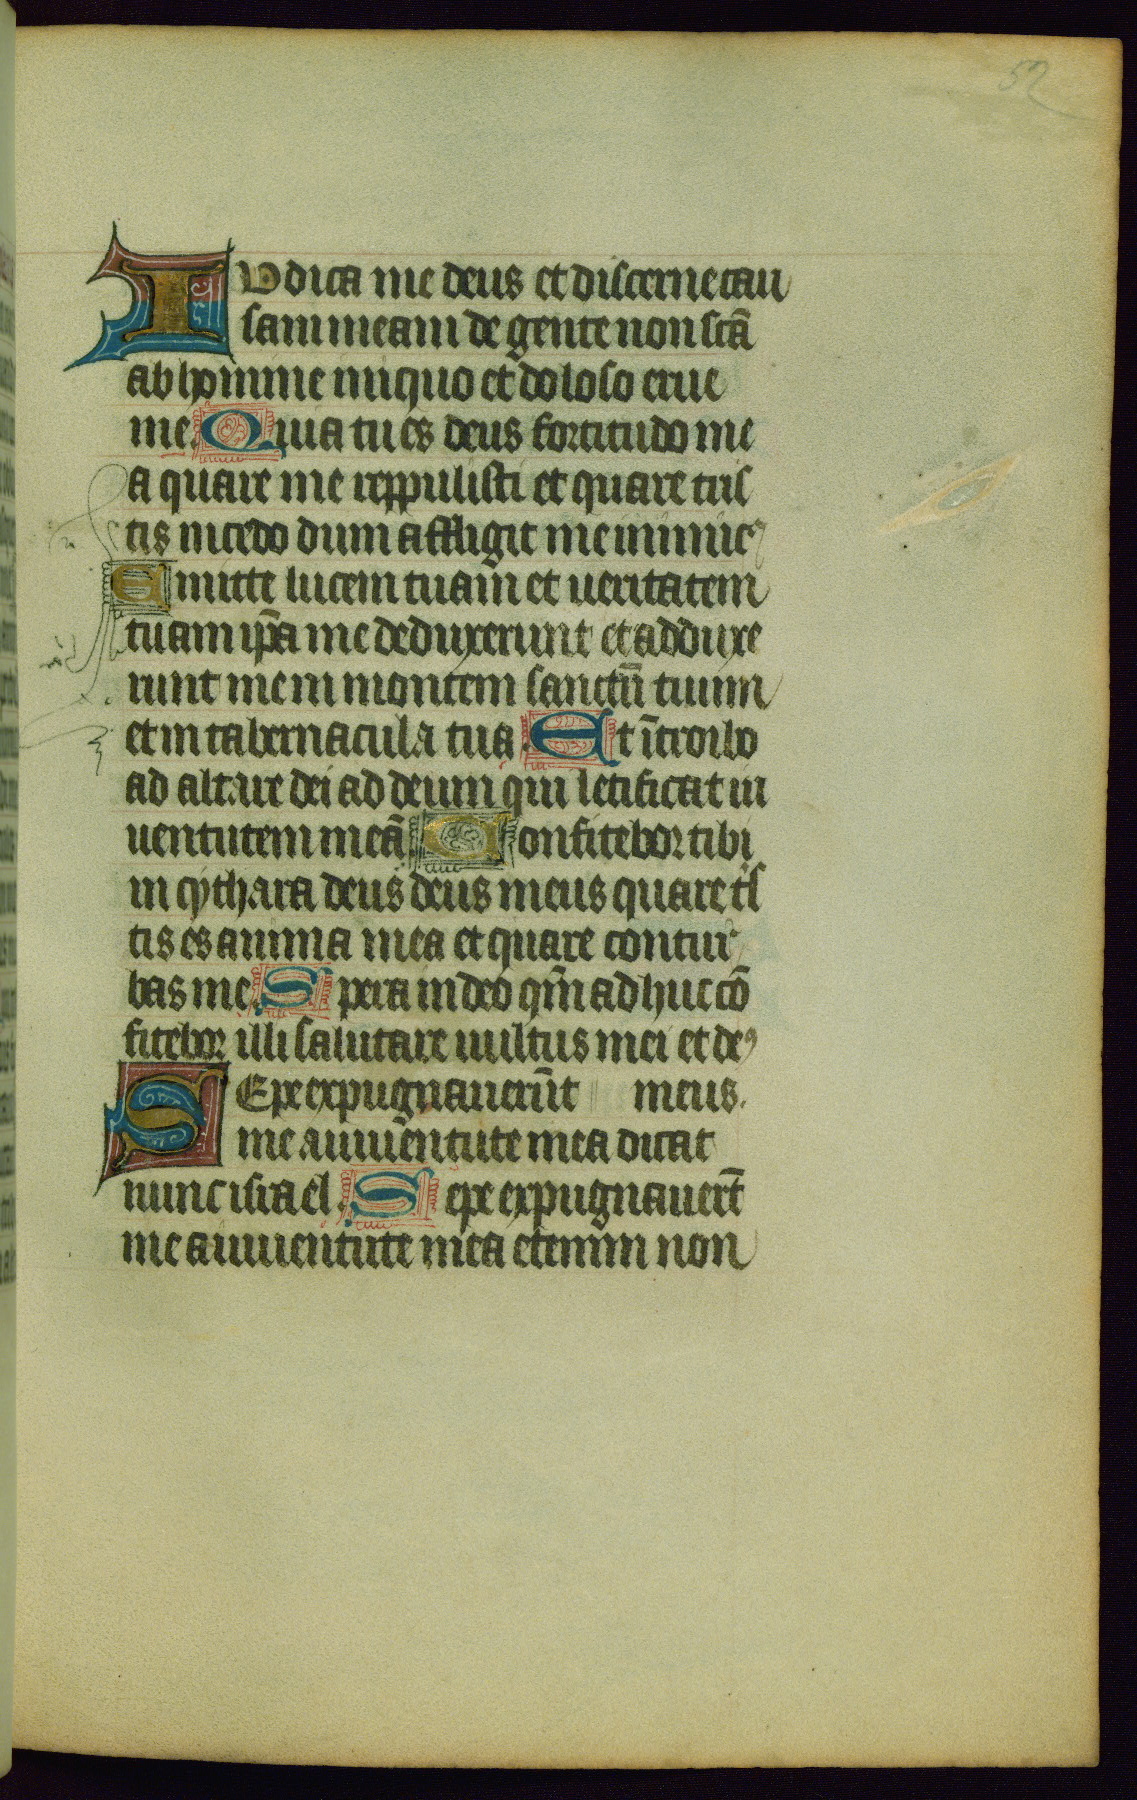 52
IUdica me deus et discerne cau
sam meam de gente non scā
ab homine iniquo et doloso erue
me. Quia tu es deus fortitudo me
a quare me reppulisti et quare tris
tis incedo dum affligit me inimicꝰ
Emitte lucem tuam et ueritatem
tuam ip̄a me deduxerunt et adduxe
runt me in montem sanctū tuum
et in tabernacula tua. Et ītroibo
ad altare dei ad deum qui letificat iu
uentutem meā. Confitebor tibi
in cythara deus deus meus quare tis
tis es anima mea et quare contur
bas me. Spera in deo qm̄ adhuc cō
fitebor illi salutare uultus mei et deꝰ
SEpe expugnauerūt meus.
me a iuuentute mea dicat
nunc israel. Sepe expugnauert̄
me a iuuentute mea etenim non